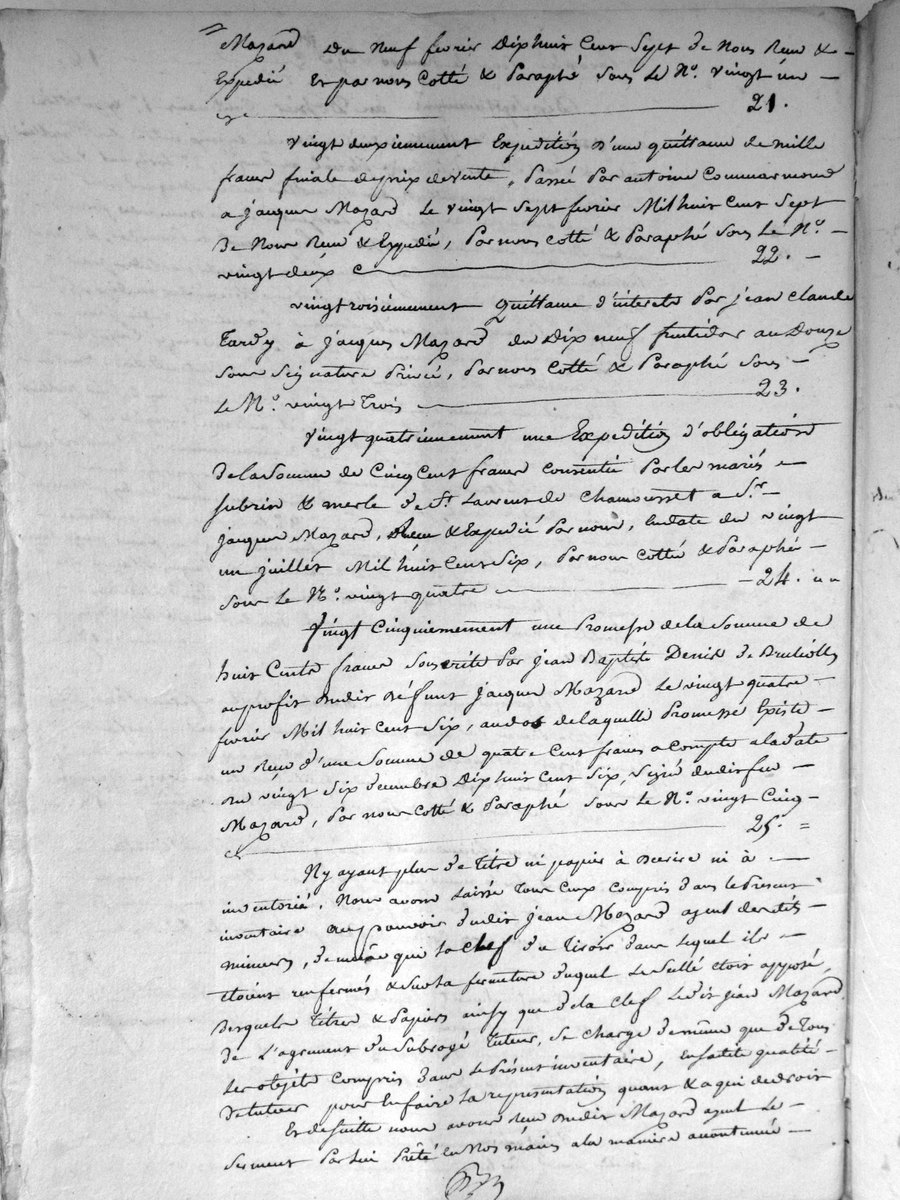 Mazard Du Neuf fevrier Dix huit Cent Sept de Nous Reçu &
Expedié Et par nous Cotté & Paraphé Sous Le No. vingt un
21.
vingt deuxiemement Expedition d'une quittance de mille
francs finale de prix de vente, Passée Par antoine Commarmond
a jacques Mazard Le vingt Sept fevrier Mil huit Cent Sept
de Nous Reçu & Expedié, Par nous cotté & Paraphé Sous Le No.
vingt deux 22.
vingtroisiemement Quittance d'interets Par jean Claude
Tardy à jacques Mazard du Dix neuf fructidor an Douze
Sous Signature Privée, Par nous Cotté & Paraphé Sous
Le No. vingt Trois 23.
Vingt quatriemement une Expedition d'obligation
de la Somme de Cinq Cent francs Consentie Par les mariés
subrin & merle de St. Laurent de Chamousset a Sr.
jacques Mazard, Reçue & Expedié Par nous, En date du vingt
un juillet Mil huit Cent Six, Par nous Cotté & Paraphé
Sous Le No. vingt quatre 24.
Vingt Cinquiemement une Promesse de la Somme de
huit Cents francs Souscrite Par Jean Baptiste Denis de Brulliolles
au profit dudit Défunt Jacques Mazard Le vingt quatre
fevrier Mil huit Cent Six, au dos de laquelle Promesse Existe
un Reçu d'une Somme de quatre Cent francs a Compte a la date
du vingt Six decembre Dix huit Cent Six, Signé dudit feu
Mazard, Par nous Cotté & Paraphé Sous Le No. vingt Cinq
25.
N'y ayant plus de Titre ni papier à Décrire ni à
inventorié, Nous avons Laissé Tous Ceux Compris dans le Present
inventaire au pouvoir dudit Jean Mazard ayeul desdits
mineurs, de même que la Clef du Tiroir dans Lequel ils
Etoient renfermés & Sur la fermeture duquel Le Scellé étoit apposé,
Desquels Titres & Papiers ainsy que de la Clef Ledit Jean Mazard
de L'agrement du Subrogé Tuteur, Se Charge de même que de Tous
Les objets Compris dans Le Présent inventaire, En sadite qualité
de tuteur pour En faire La représentation quant & a qui de droit
Et de suitte nous avons Reçu dudit Mazard ayeul Le
Serment Par Lui Prêté en Nos mains a la maniere accoutumée